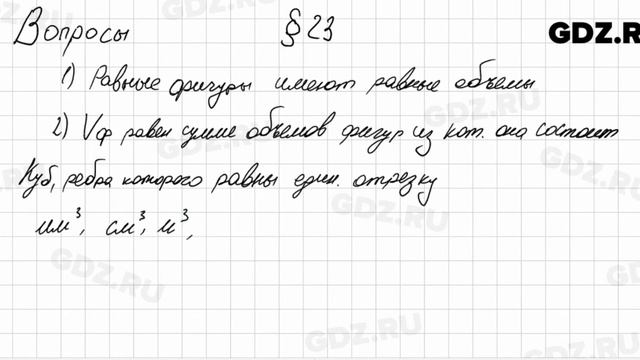 Вопросы § 23 GDZ.RU
1) Равные фигуры имеют равные объемы
2) Vф равен сумме объемов фигур из кот. она состоит
Куб, ребра которого равны един. отрезку
мм³, см³, м³,
GDZ.RU
GDZ.RU
GDZ.RU
GDZ.RU